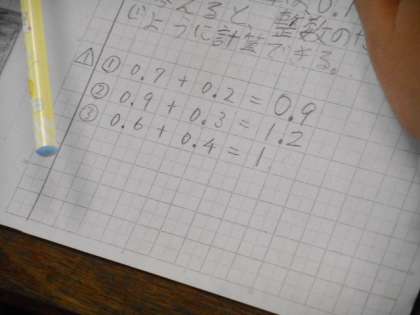 0.1
えると、整数の
じように計算できる。
△1 ① 0.7 + 0.2 = 0.9
② 0.9 + 0.3 = 1.2
③ 0.6 + 0.4 = 1